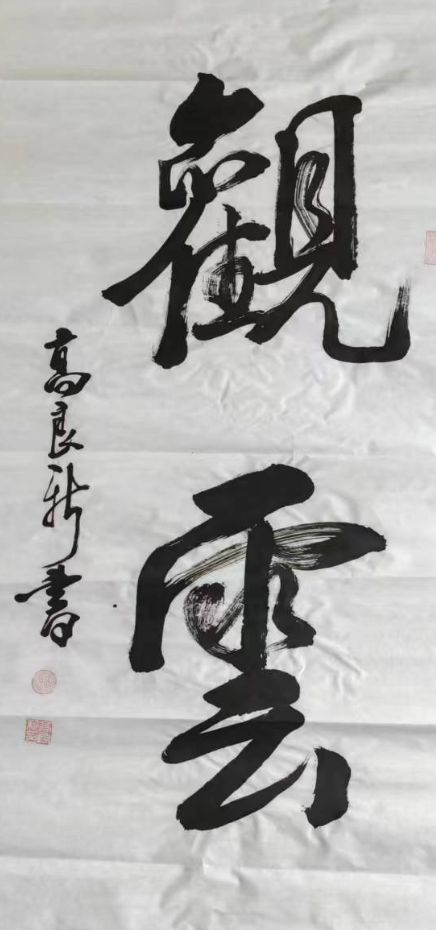 觀雲
高良新書